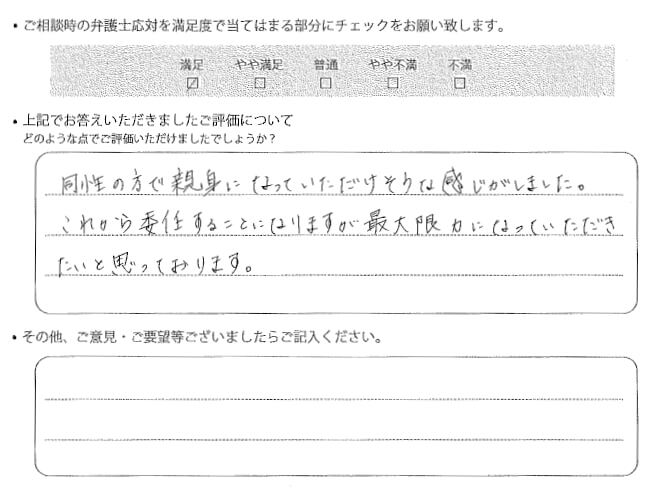 ・ご相談時の弁護士応対を満足度で当てはまる部分にチェックをお願い致します。
満足 やや満足 普通 やや不満 不満
☑ □ □ □ □
・上記でお答えいただきましたご評価について
どのような点でご評価いただけましたでしょうか?
同性の方で親身になっていただけそうな感じがしました。
これから委任することになりますが最大限力になっていただき
たいと思っております。
・その他、ご意見・ご要望等ございましたらご記入ください。